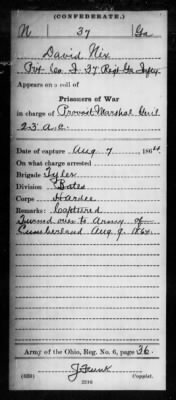 (CONFEDERATE.)
N 37 Ga
David Nix
Pvt Co. I 37 Regt Ga Infty.
Appears on a roll of
Prisoners of War
in charge of Provost Marshal Genl
23 a.c.
Date of capture Aug 7, 1864
On what charge arrested
Brigade Tyler
Division Bates
Corps Hardee
Remarks: Captured
Turned over to Army of
Cumberland Aug 9. 1864
Army of the Ohio, Reg. No. 6, page 36
J. Funk
(639) 2216 Copyist.